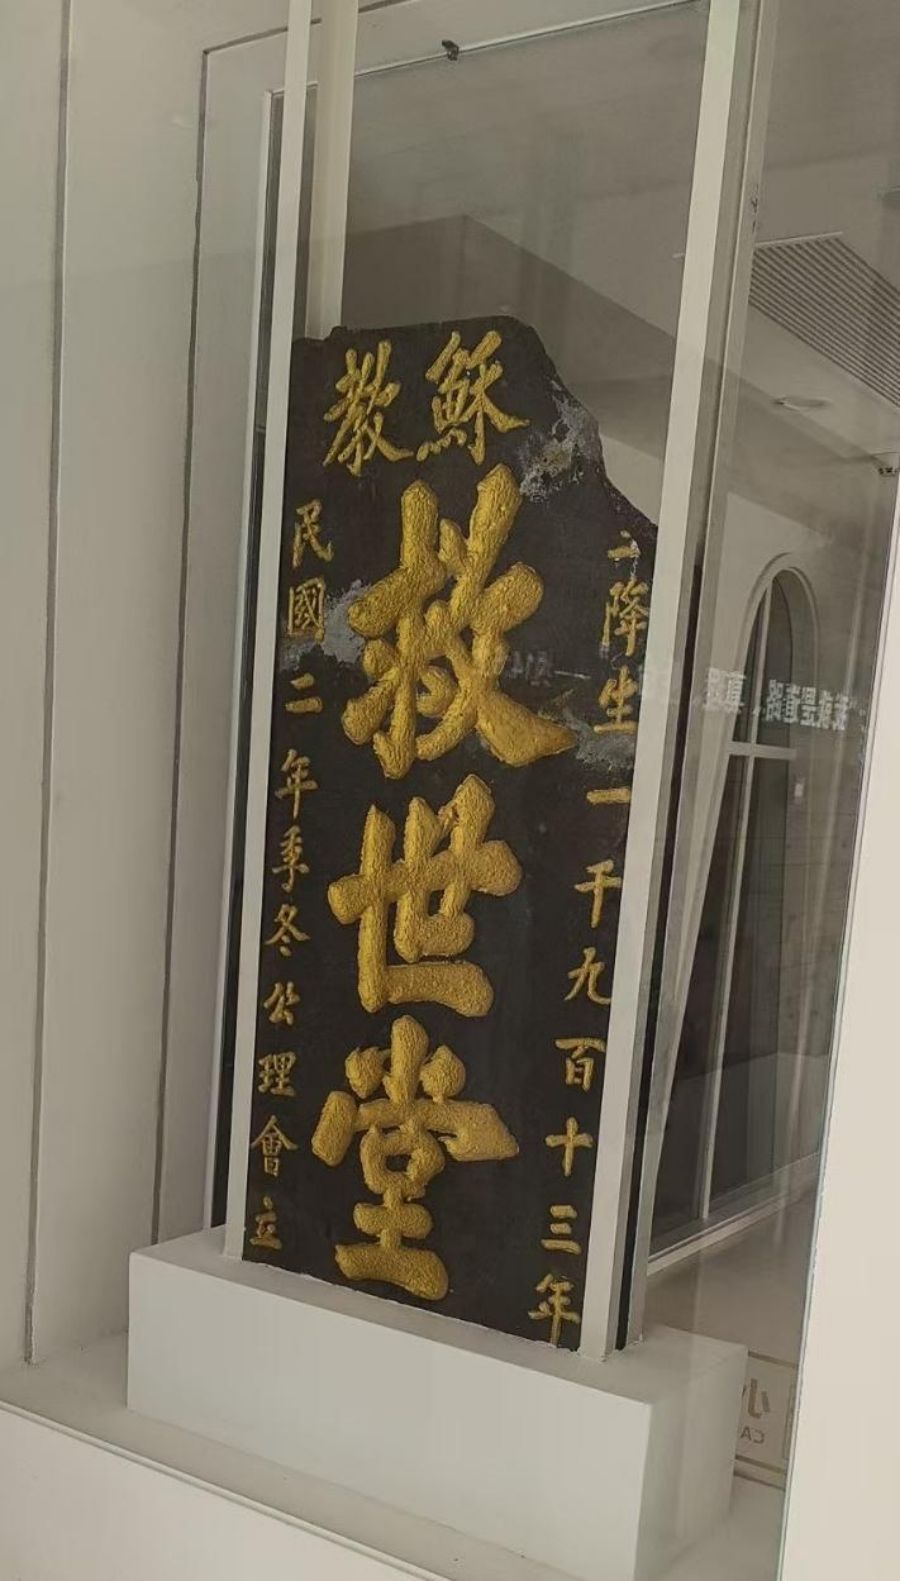 穌教
降生一千九百十三年
救世堂
民國二年季冬公理會立